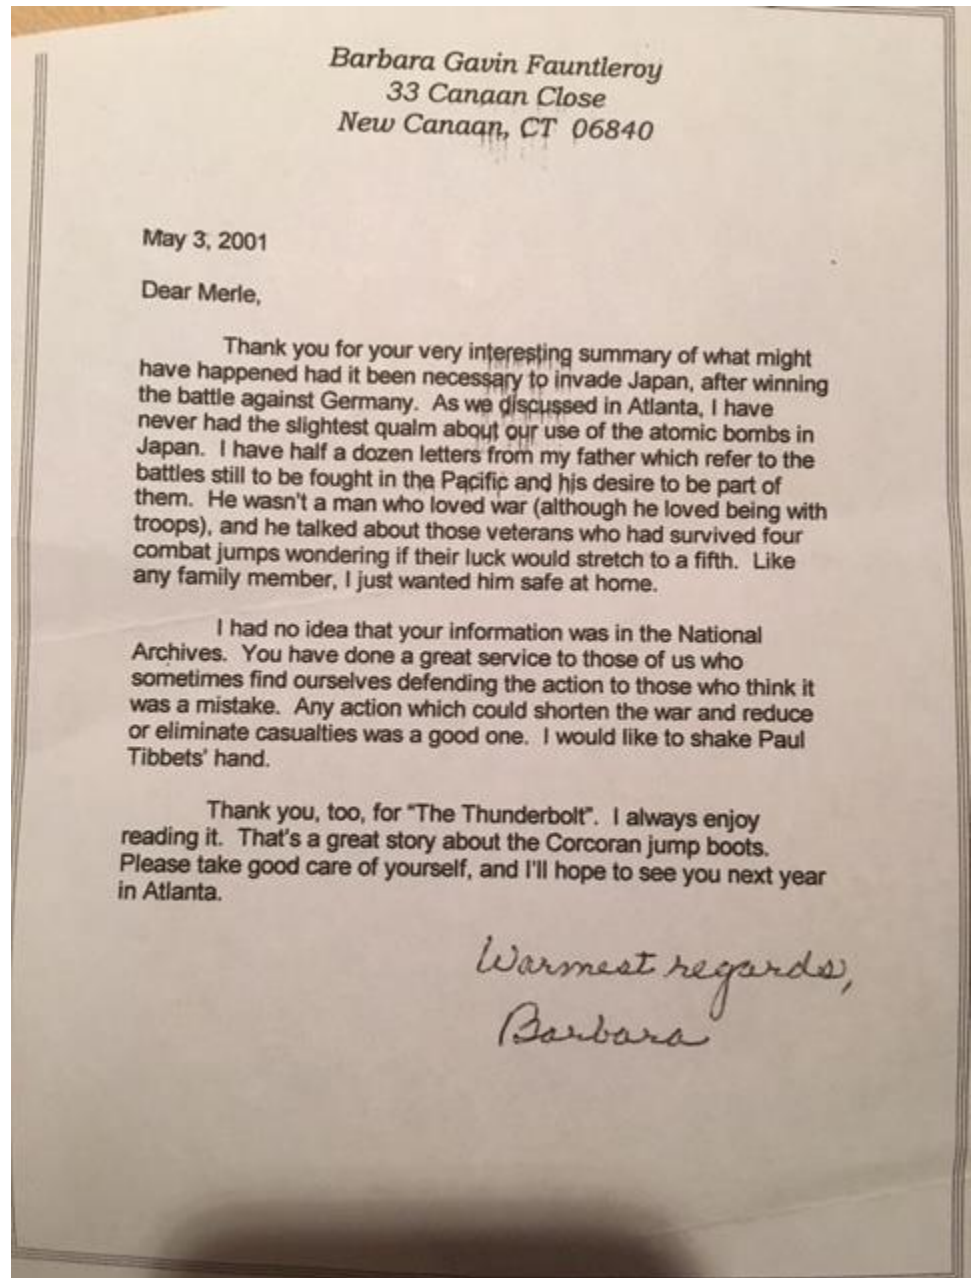 Barbara Gavin Fauntleroy
33 Canaan Close
New Canaan, CT 06840
May 3, 2001
Dear Merle,
Thank you for your very interesting summary of what might
have happened had it been necessary to invade Japan, after winning
the battle against Germany. As we discussed in Atlanta, I have
never had the slightest qualm about our use of the atomic bombs in
Japan. I have half a dozen letters from my father which refer to the
battles still to be fought in the Pacific and his desire to be part of
them. He wasn't a man who loved war (although he loved being with
troops), and he talked about those veterans who had survived four
combat jumps wondering if their luck would stretch to a fifth. Like
any family member, I just wanted him safe at home.
I had no idea that your information was in the National
Archives. You have done a great service to those of us who
sometimes find ourselves defending the action to those who think it
was a mistake. Any action which could shorten the war and reduce
or eliminate casualties was a good one. I would like to shake Paul
Tibbets' hand.
Thank you, too, for "The Thunderbolt". I always enjoy
reading it. That's a great story about the Corcoran jump boots.
Please take good care of yourself, and I'll hope to see you next year
in Atlanta.
Warmest regards,
Barbara